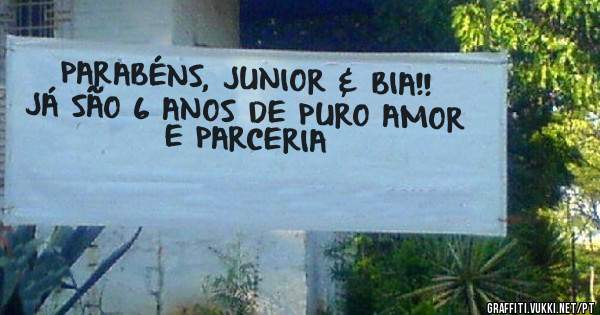 PARABÉNS, JUNIOR & BIA!!
JÁ SÃO 6 ANOS DE PURO AMOR
E PARCERIA
GRAFFITI.VUKKI.NET/PT